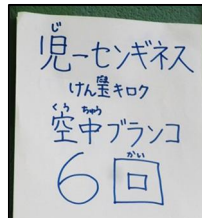 じ
児一センギネス
けん玉キロク
くう ちゅう
空中ブランコ
かい
6回